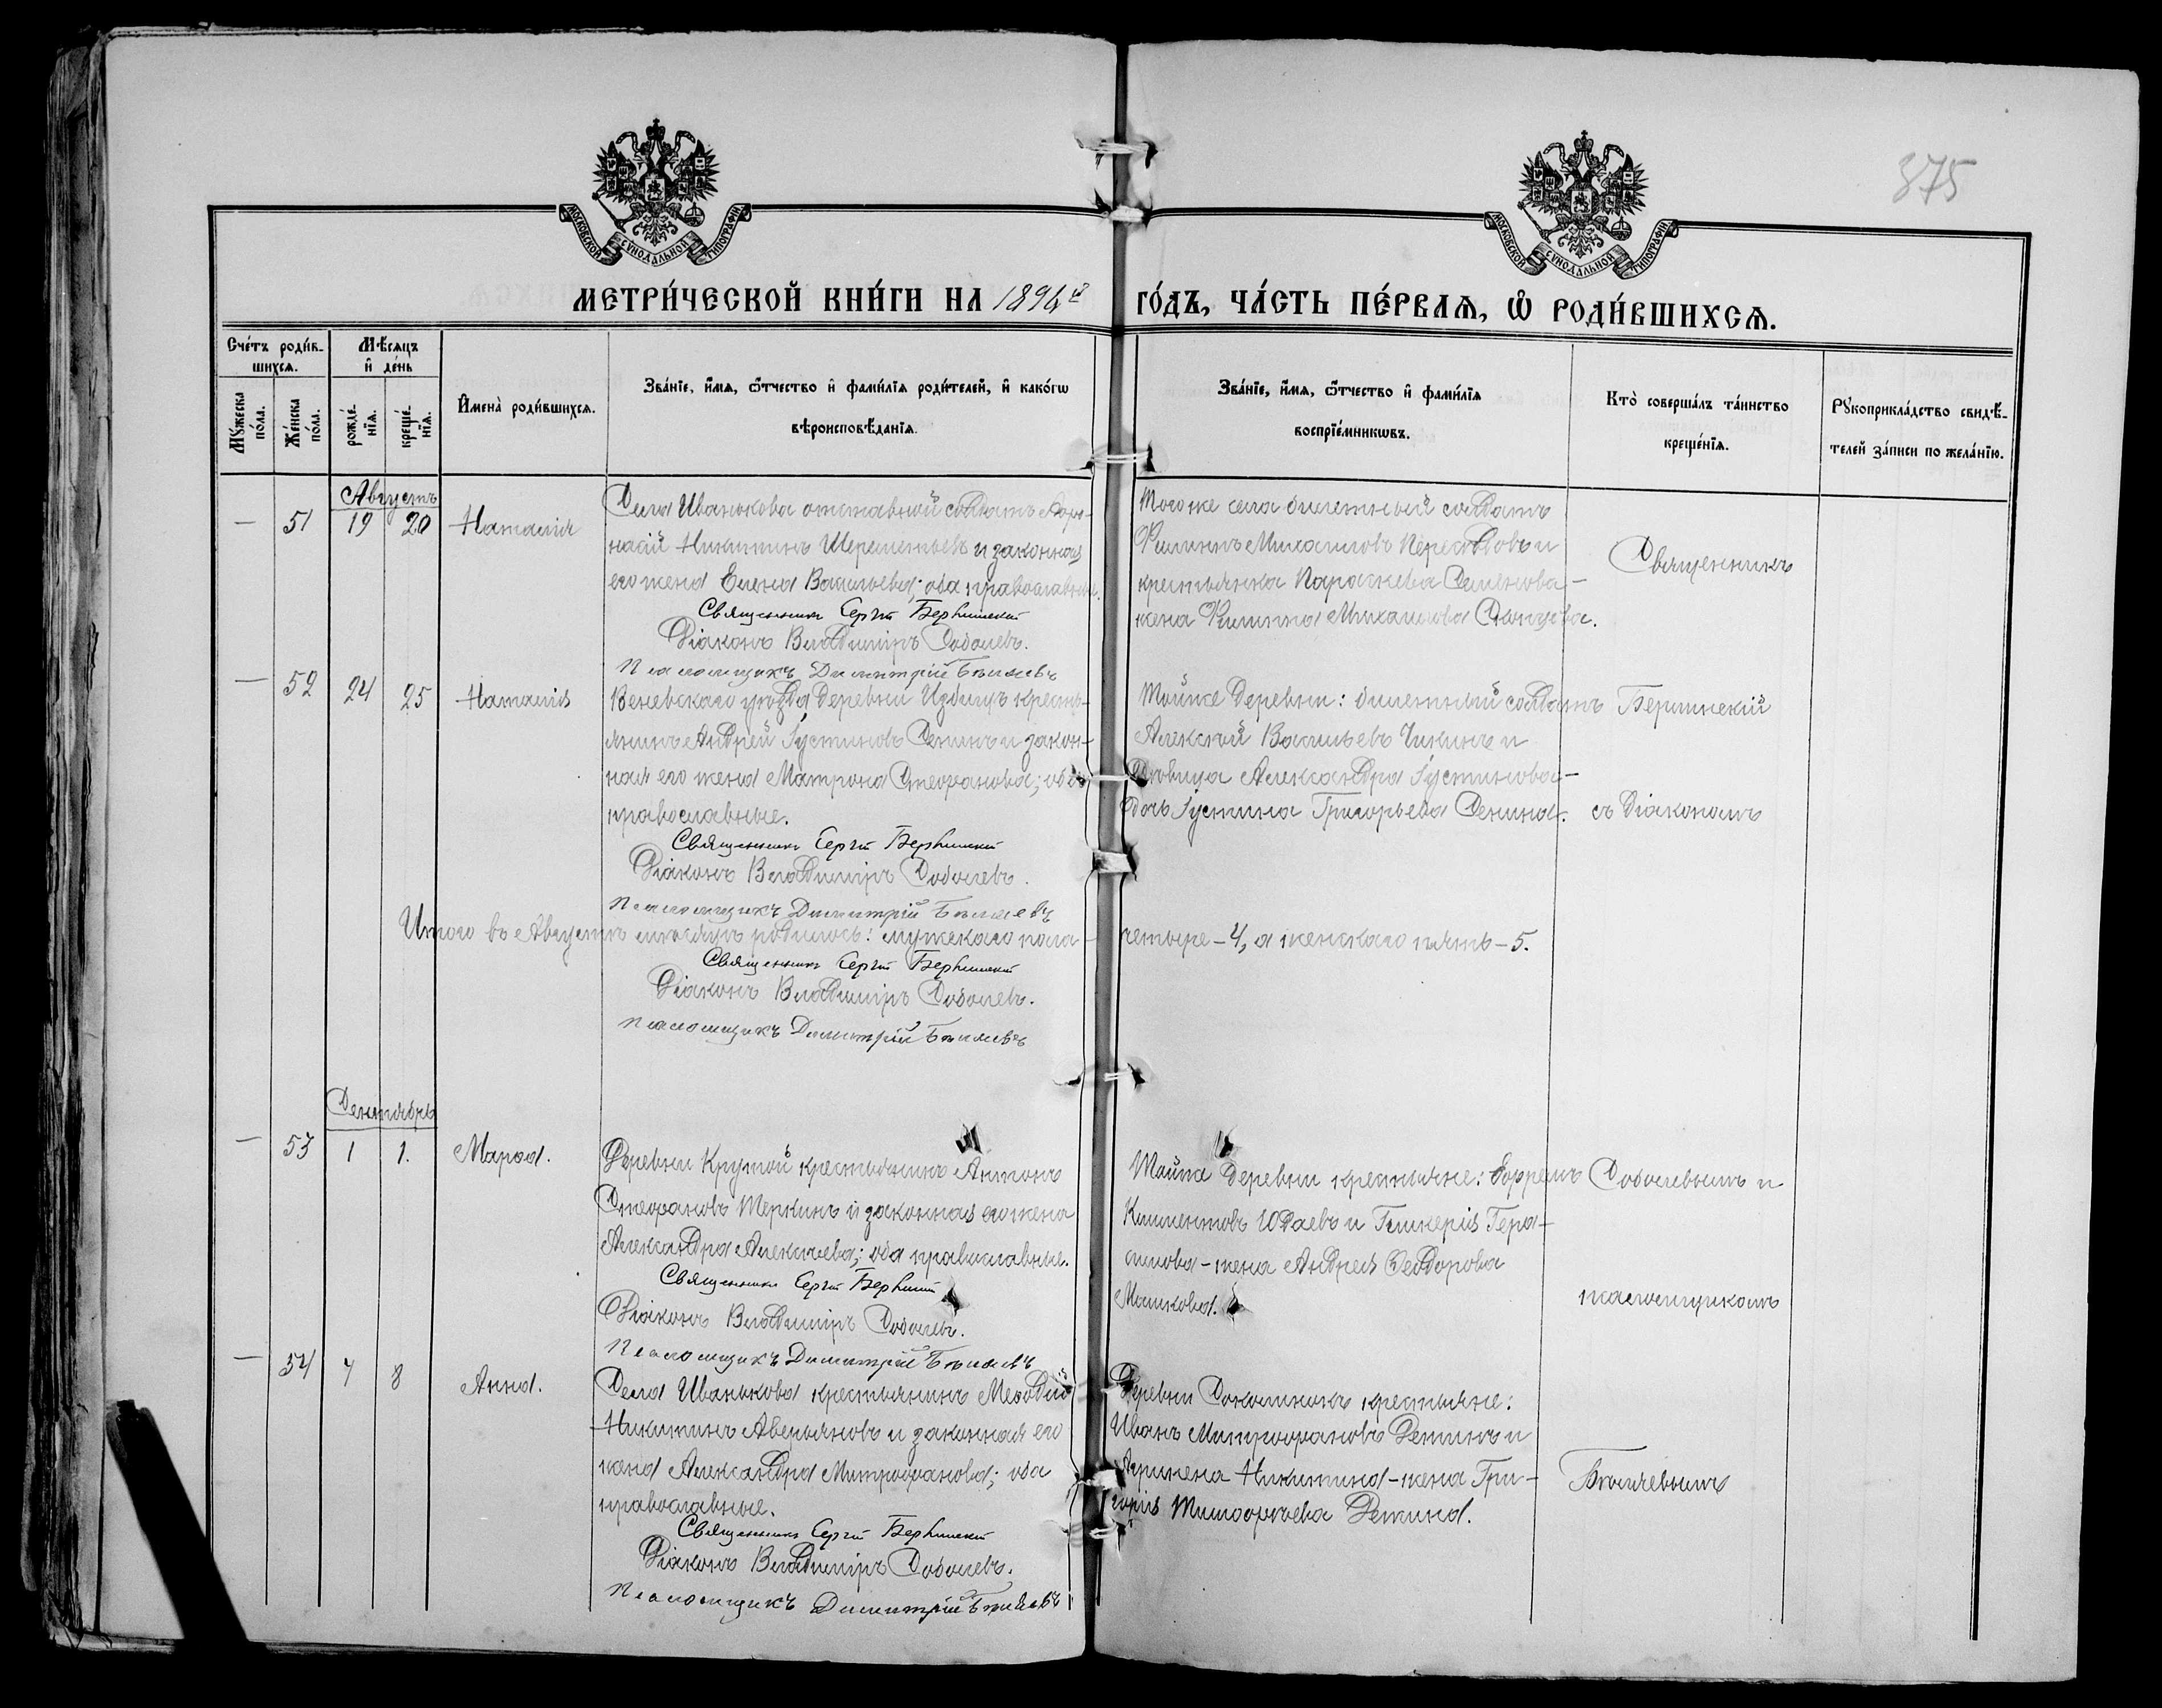 875
МОСКОВСКОЙ СУНОДАЛЬНОЙ ТИПОГРАФІИ
МОСКОВСКОЙ СУНОДАЛЬНОЙ ТИПОГРАФІИ
МЕТРИ́ЧЕСКОЙ КНИ́ГИ НА 1896й ГО́ДЪ, ЧА́СТЬ ПЕ́РВАЯ, Ѽ РОДИ́ВШИХСЯ.
Сче́тъ роди́в-
шихся.
Мѣ́сяцъ
и̂ де́нь
Мꙋ́жеска
по́ла.
Же́нска
по́ла.
рожде́-
нїя.
креще́-
нїя.
И҆мена̀ роди́вшихся.
Зва́нїе, и҆́мя, ѻ҆́тчество и҆ фами́лїя роди́телей, и҆ како́гѡ
вѣроисповѣ́данїя.
Зва́нїе, и҆́мя, ѻ҆́тчество и҆ фами́лїя
воспрїе́мникѡвъ.
Кто̀ соверша́лъ та́инство
креще́нїя.
Рꙋкоприкла́дство свидѣ́-
телей за́писи по жела́нїю.
Августъ
— 51 19 20 Наталія
Села Иванькова отставной солдатъ
Никитинъ Шереметьевъ и законная
его жена Елена Васильева; оба православные.
Священникъ Сергій Березинскій
Діаконъ Владиміръ Соболевъ.
Псаломщикъ Димитрій Бѣляевъ
Тогоже села билетный солдатъ
Филиппъ Михаиловъ и
крестьянка Параскева Семенова –
жена Филиппа Михаилова
Священникъ
— 52 24 25 Наталія
Веневскаго уѣзда деревни Избищъ кресть-
янинъ Андрей Іустиновъ Сенинъ и закон-
ная его жена Матрона Стефанова; оба
православные.
Священникъ Сергій Березинскій
Діаконъ Владиміръ Соболевъ.
Псаломщикъ Димитрій Бѣляевъ
Тойже деревни: билетный солдатъ
Алексѣй Васильевъ Чикинъ и
дѣвица Александра Іустинова –
дочь Іустина Григорьева Сенина.
съ діакономъ
Итого въ Августѣ мѣсяцѣ родилось: мужескаго пола – четыре – 4, а женскаго пять – 5.
Священникъ Сергій Березинскій
Діаконъ Владиміръ Соболевъ.
Псаломщикъ Димитрій Бѣляевъ
Сентябрь
— 53 1 1. Марѳа.
Деревни Крутой крестьянинъ Антонъ
Стефановъ Теркинъ и законная его жена
Александра Алексѣева; оба православные.
Священникъ Сергій
Діаконъ Владиміръ Соболевъ.
Псаломщикъ Димитрій Бѣляевъ
Тойже деревни крестьяне: Ефремъ
Климентовъ Юдаевъ и Гликерія Гера-
симова – жена Андрея Ѳеодорова
Машкова.
Соболевымъ и
псаломщикомъ
— 54 7 8 Анна.
Села Иванькова крестьянинъ Меѳодій
Никитинъ Аверьяновъ и законная его
жена Александра Митрофанова; оба
православные.
Священникъ Сергій Березинскій
Діаконъ Владиміръ Соболевъ.
Псаломщикъ Димитрій Бѣляевъ
Деревни Сокольникъ крестьяне:
Иванъ Митрофановъ Деминъ и
Агрипена Никитина – жена Гри-
горія Тимофѣева Демина.
Бѣляевымъ